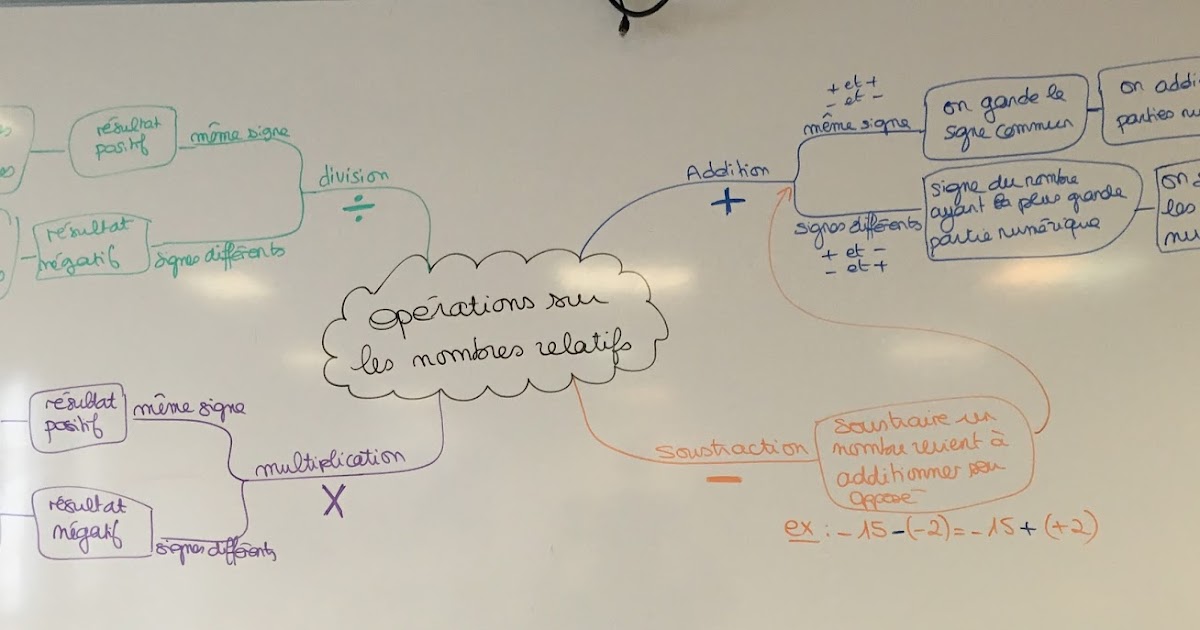 opérations sur
les nombres relatifs
division
÷
même signe
résultat
positif
signes différents
résultat
négatif
Addition
+
+ et +
- et -
même signe
on garde le
signe commun
on addi
parties nu
signes différents
+ et -
- et +
signe du nombre
ayant la plus grande
partie numérique
on s
les
nu
multiplication
X
même signe
résultat
positif
signes différents
résultat
négatif
soustraction
-
soustraire un
nombre revient à
additionner son
opposé
ex : -15-(-2)=-15+(+2)